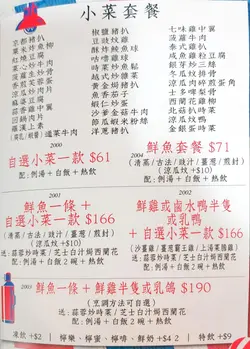 小菜套餐
椒鹽豬扒
七味雞中翼
京都豬扒
豉椒炒魷
菠蘿牛肉
粟米炒魚柳
泰式雞扒
紅燒豆腐
咕嚕雞球
咸魚雞粒豆腐
菜心炒牛肉
時菜炒魚鬆
銀芽炒三絲
香煎芙蓉蛋
越式炒雜菜
冬瓜炆排骨
涼瓜炆魚腩
黃金炸魚
涼瓜肉碎煎蛋角
麻婆豆腐
魚香茄子
士多啤梨骨
中式牛柳
蝦仁炒蛋
西蘭花雞柳
回鍋肉片
沙爹金菇牛肉
椰汁葡國雞
羅漢上素
節瓜蝦米粉絲
金銀蛋時菜
洋蔥豬扒
2000
自選小菜一款 $61
配:例湯+白飯+熱飲
2004
鮮魚套餐 $71
(清蒸/古法/豉汁/薑蔥/煎封)
(涼瓜炆+$10)
配:例湯+白飯+熱飲
2001
鮮魚一條 +
自選小菜一款 $166
(清蒸/古法/豉汁/薑蔥/煎封)
(涼瓜炆+$10)
送:蒜蓉炒時菜/芝士白汁焗西蘭花
配:例湯+白飯2碗+熱飲
2002
鮮雞或滷水鴨半隻
或乳鴿
+ 自選小菜一款 $166
(沙薑雞/薑蔥霸王雞/上湯菜膽雞)
送:蒜蓉炒時菜/芝士白汁焗西蘭花
配:例湯+白飯2碗+熱飲
2003
鮮魚一條 + 鮮雞半隻或乳鴿 $190
(烹調方法可自選)
送:蒜蓉炒時菜/芝士白汁焗西蘭花
配:例湯+白飯2碗+熱飲
凍飲+$2 | 檸樂、檸蜜、檸啡、鮮奶+$4 2 | 特飲+$9